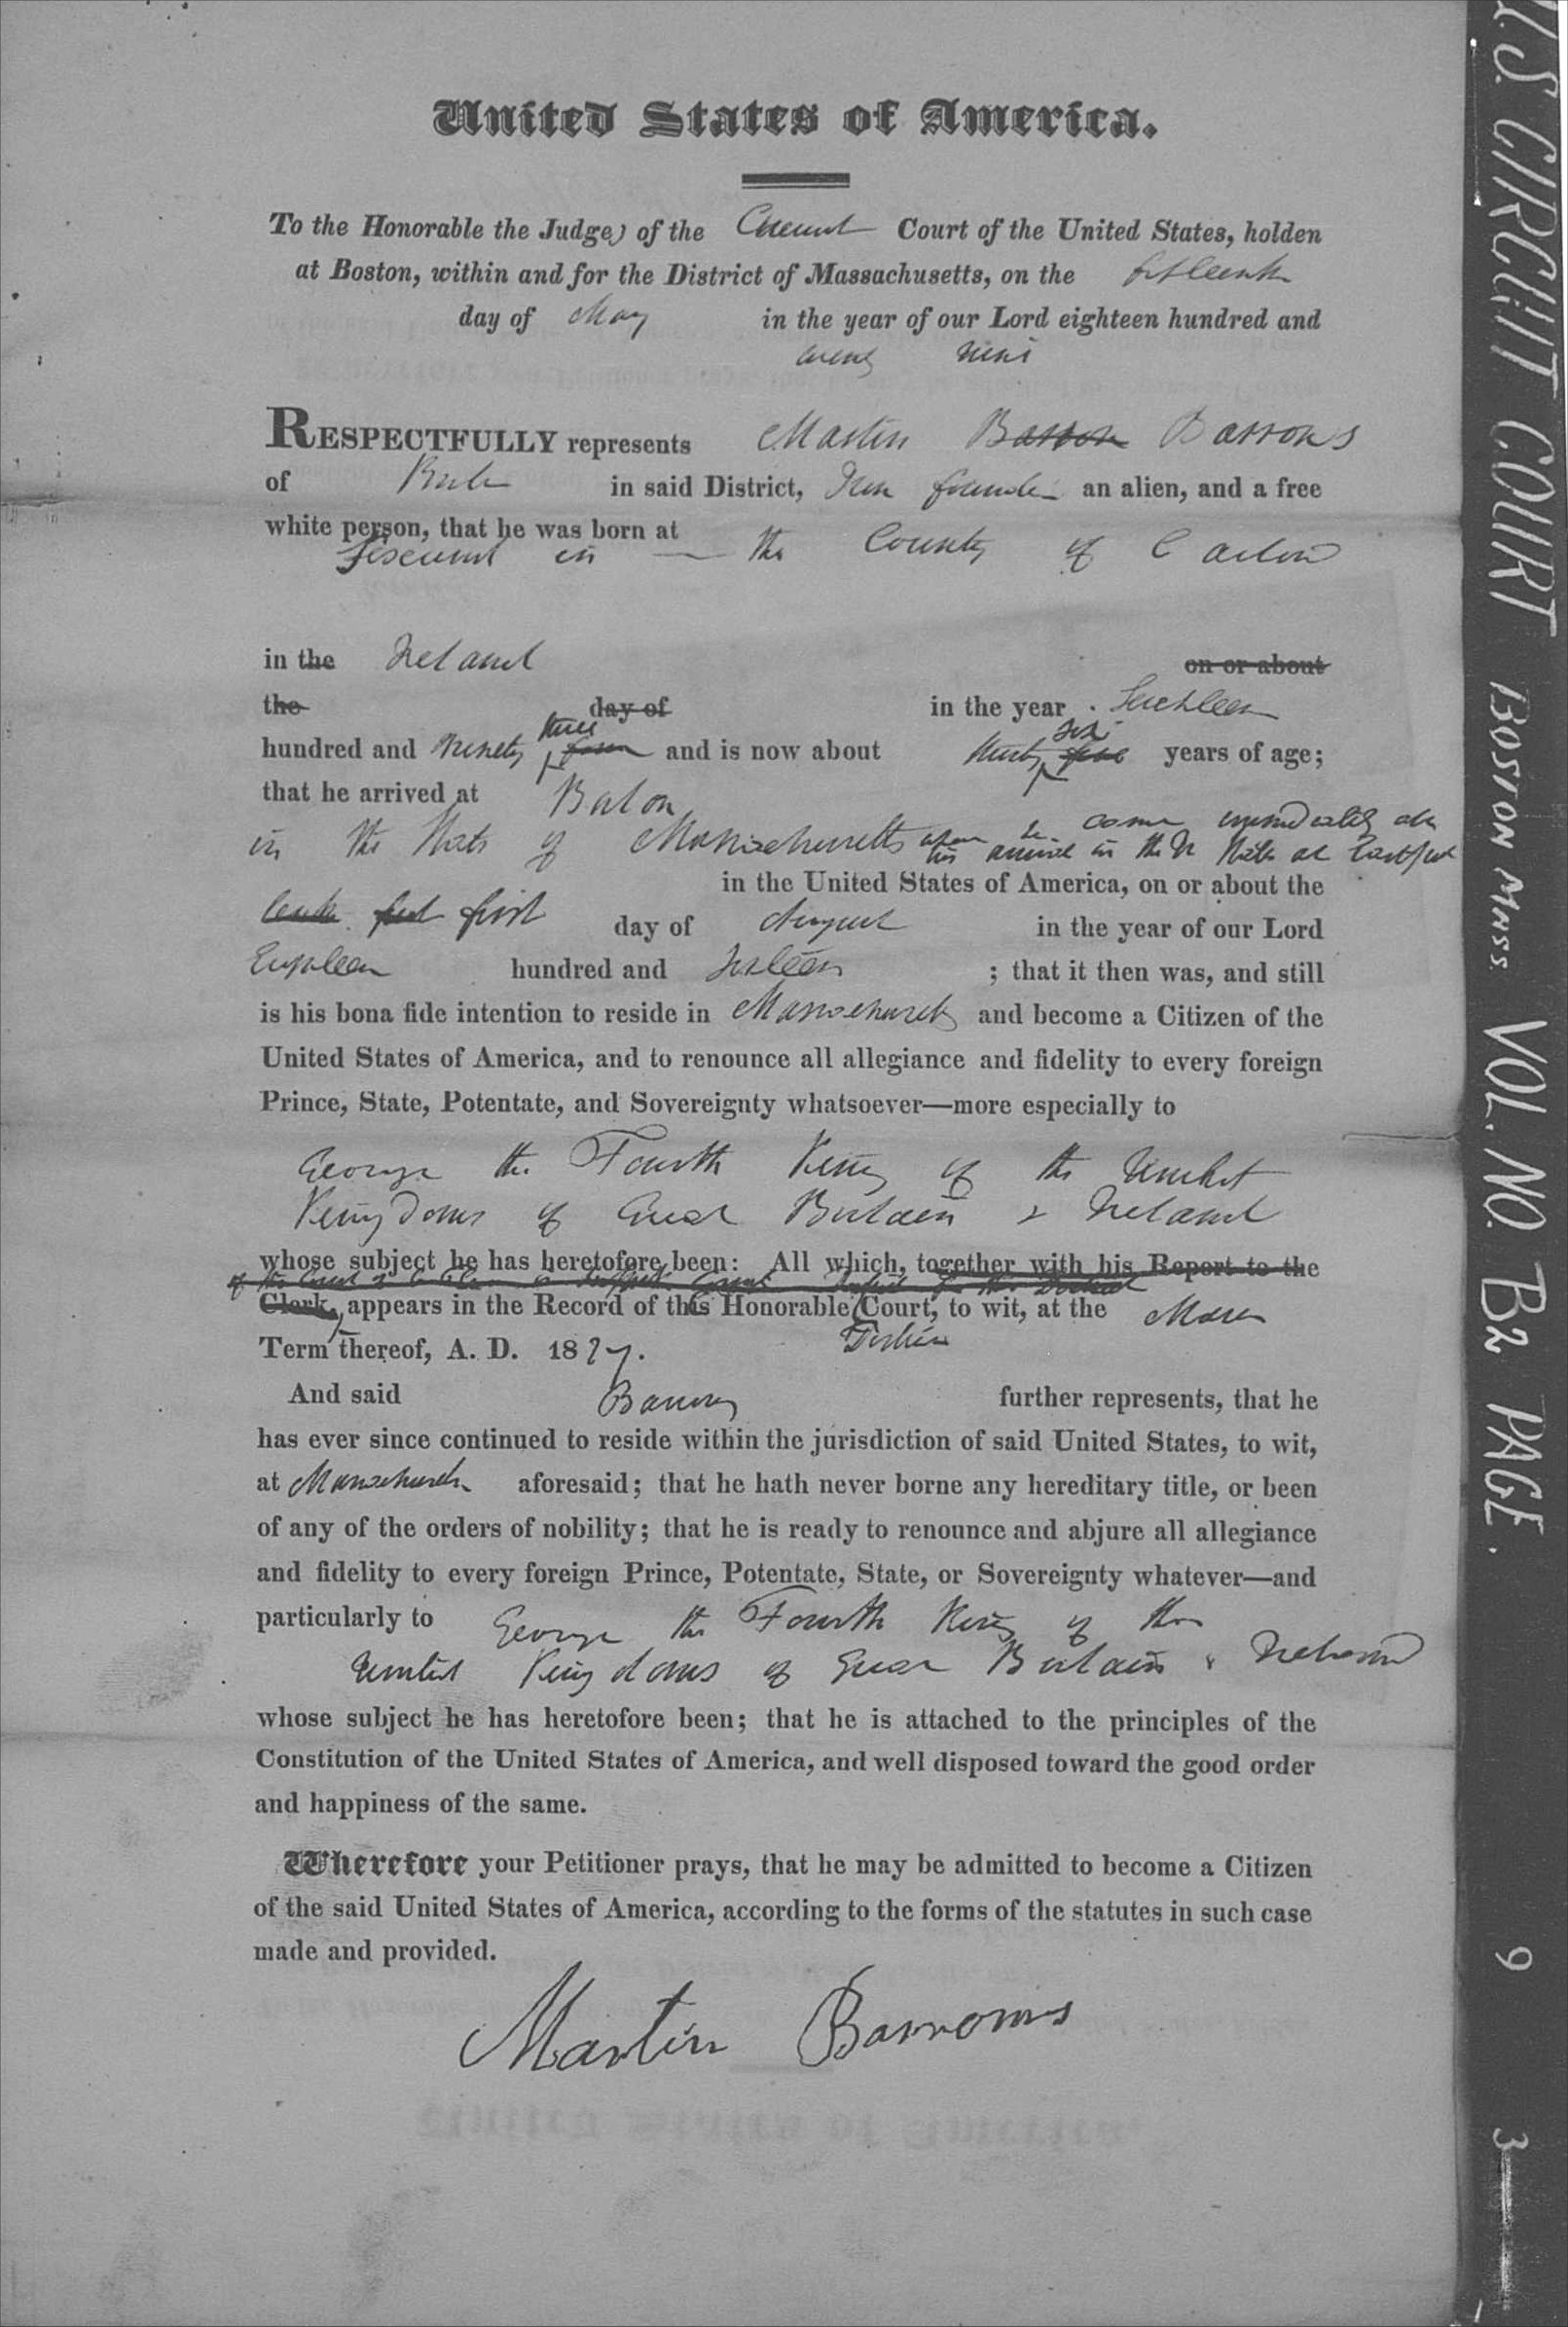 United States of America.
To the Honorable the Judges of the Circuit Court of the United States, holden
at Boston, within and for the District of Massachusetts, on the fifteenth
day of May in the year of our Lord eighteen hundred and
twenty nine
RESPECTFULLY represents Martin Barron Barrons
of in said District, Iron founder an alien, and a free
white person, that he was born at
in the County of Carlow
in the Ireland on or about
the day of in the year Seventeen
hundred and Ninety three four and is now about thirty six five years of age;
that he arrived at Boston
in the State of Massachusetts where he came immediately after
his arrival in the U States at Eastport
in the United States of America, on or about the
first day of August in the year of our Lord
Eighteen hundred and Sixteen ; that it then was, and still
is his bona fide intention to reside in Massachusetts and become a Citizen of the
United States of America, and to renounce all allegiance and fidelity to every foreign
Prince, State, Potentate, and Sovereignty whatsoever—more especially to
George the Fourth King of the United
Kingdoms of Great Britain & Ireland
whose subject he has heretofore been: All which, together with his Report to the
Clerk, appears in the Record of this Honorable Court, to wit, at the March
Term thereof, A. D. 1827.
And said Barrons further represents, that he
has ever since continued to reside within the jurisdiction of said United States, to wit,
at Massachusetts aforesaid; that he hath never borne any hereditary title, or been
of any of the orders of nobility; that he is ready to renounce and abjure all allegiance
and fidelity to every foreign Prince, Potentate, State, or Sovereignty whatever—and
particularly to George the Fourth King of the
United Kingdoms of Great Britain & Ireland
whose subject he has heretofore been; that he is attached to the principles of the
Constitution of the United States of America, and well disposed toward the good order
and happiness of the same.
Wherefore your Petitioner prays, that he may be admitted to become a Citizen
of the said United States of America, according to the forms of the statutes in such case
made and provided.
Martin Barrons
U.S. CIRCUIT COURT BOSTON MASS. VOL. NO. B2 PAGE. 9 3